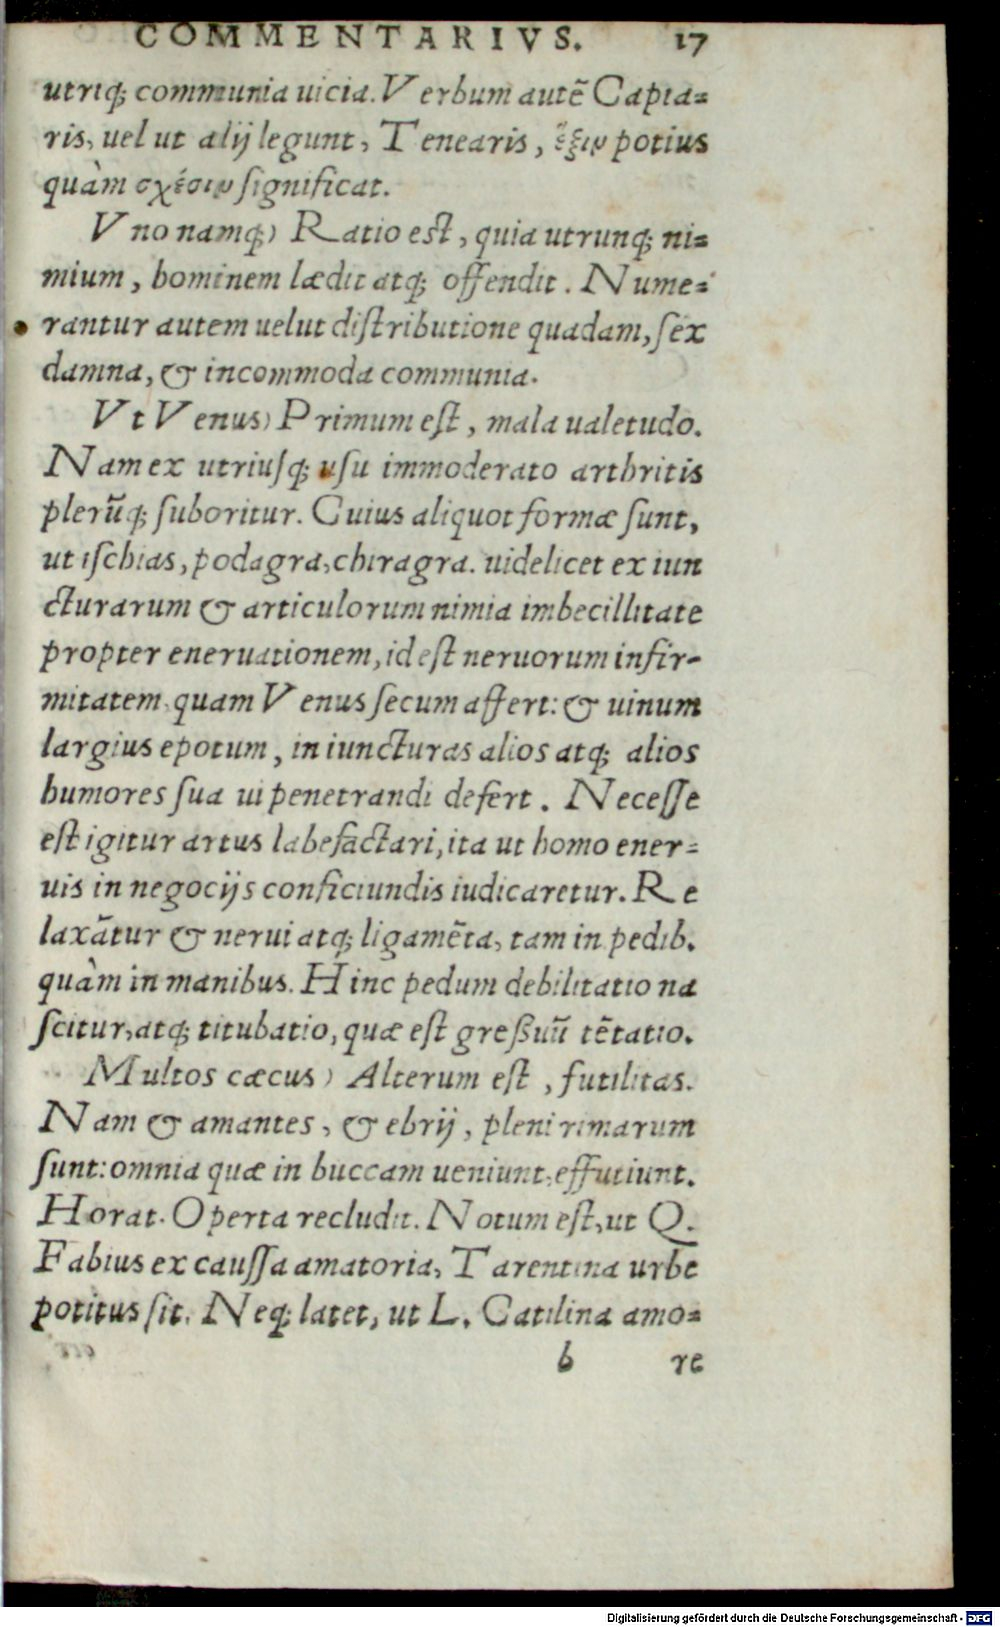 COMMENTARIVS. 17
utriq; communia uicia. Verbum autē Capta=
ris, uel ut alij legunt, Tenearis, ἕξιν potius
quàm σχέσιν significat.
Vno namq;) Ratio est, quia utrunq; ni=
mium, hominem lædit atq; offendit. Nume=
rantur autem uelut distributione quadam, sex
damna, & incommoda communia.
Vt Venus) Primum est, mala ualetudo.
Nam ex utriusq; usu immoderato arthritis
plerūq; suboritur. Cuius aliquot formæ sunt,
ut ischias, podagra, chiragra. uidelicet ex iun
cturarum & articulorum nimia imbecillitate
propter eneruationem, id est neruorum infir-
mitatem quam Venus secum affert: & uinum
largius epotum, in iuncturas alios atq; alios
humores sua ui penetrandi defert. Necesse
est igitur artus labefactari, ita ut homo ener=
uis in negocijs conficiundis iudicaretur. Re
laxātur & nerui atq; ligamēta, tam in pedib.
quàm in manibus. Hinc pedum debilitatio na
scitur, atq; titubatio, quæ est greßuū tētatio.
Multos cæcus) Alterum est, futilitas.
Nam & amantes, & ebrij, pleni rimarum
sunt: omnia quæ in buccam ueniunt, effutiunt.
Horat. Operta recludit. Notum est, ut Q.
Fabius ex caussa amatoria, Tarentina urbe
potitus sit. Neq; latet, ut L. Catilina amo=
b re
Digitalisierung gefördert durch die Deutsche Forschungsgemeinschaft - DFG